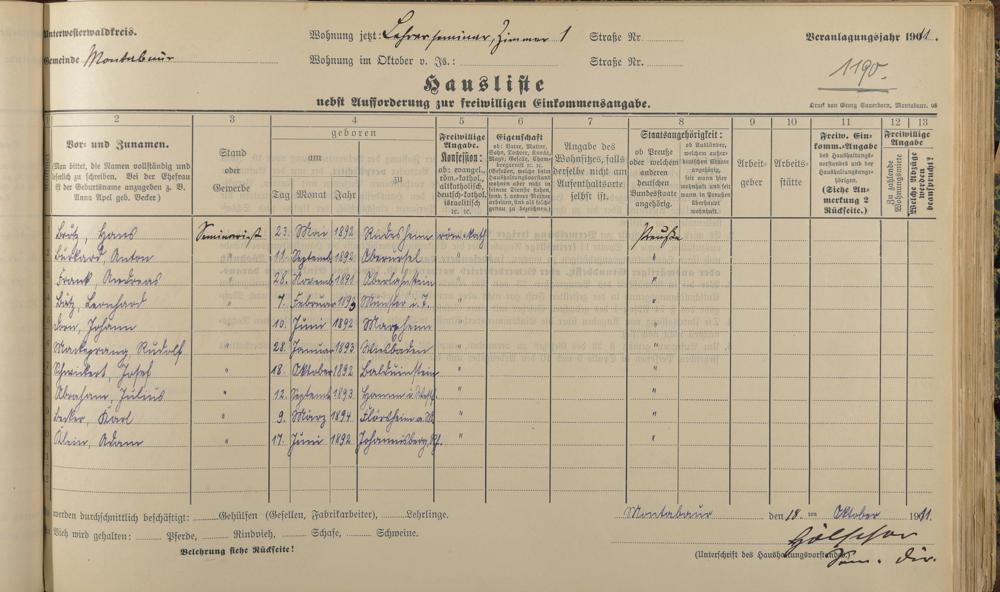 Unterwesterwaldkreis.
Gemeinde Montabaur
Wohnung jetzt: Lehrerseminar, Zimmer 1 Straße Nr.
Wohnung im Oktober v. Js.: Straße Nr.
Veranlagungsjahr 1911.
1190.
Hausliste
nebst Aufforderung zur freiwilligen Einkommensangabe.
Druck von Georg Sauerborn, Montabaur.
2 3 4 5 6 7 8 9 10 11 12 13
Vor- und Zunamen.
Man bittet, die Namen vollständig und
leserlich zu schreiben. Bei der Ehefrau
ist der Geburtsname anzugeben z. B.
Anna Apel geb. Becker)
Stand
oder
Gewerbe
geboren
am
zu
Tag Monat Jahr
Freiwillige
Angabe.
Konfession:
ob: evangel.,
röm.-kathol.,
altkatholisch,
deutsch-kathol.
israelitisch
ec. ec.
Eigenschaft
ob: Vater, Mutter,
Sohn, Tochter, Knecht,
Magd, Geselle,
Angabe des
Wohnsitzes, falls
derselbe nicht am
Aufenthaltsorte
selbst ist.
Staatsangehörigkeit:
ob Preuße
oder welchem
anderen
deutschen
Bundesstaate
angehörig.
ob Ausländer,
Arbeit-
geber
Arbeits-
stätte
Freiw. Ein-
komm.-Angabe
des Haushaltungs-
vorstandes und der
Haushaltungsange-
hörigen.
(Siehe An-
merkung 2
Rückseite.)
Freiwillige
Angabe
Zu zahlende
Wohnungsmiete
Welche Abzüge
werden
beansprucht?
Hans Seminarist 23. Mai 1892 Rüdesheim röm.-kath. Preuße
Burkard, Anton " 11. Septemb 1892 Oberursel " "
Frank, Andreas " 28. Novemb 1891 Oberlahnstein " "
Leonhard " 7. Februar 1893 Münster i. T. " "
Dorn, Johann " 10. Juni 1892 Marxheim " "
Rudolf " 28. Januar 1893 Wiesbaden " "
Schwickert, Josef " 18. Oktober 1892 Balduinstein " "
Abraham, Julius " 12. Septemb 1893 Hamm i. Westf. " "
Becker, Karl " 9. März 1894 Flörsheim a. M. " "
Klein, Adam " 17. Juni 1892 Johannisberg, Rh. " "
werden durchschnittlich beschäftigt: Gehülfen (Gesellen, Fabrikarbeiter), Lehrlinge.
Vieh wird gehalten: Pferde, Rindvieh, Schafe, Schweine.
Belehrung siehe Rückseite!
Montabaur den 18. ten Oktober 1911.
Hölscher
(Unterschrift des Haushaltungsvorstandes.)
Sem. Dir.